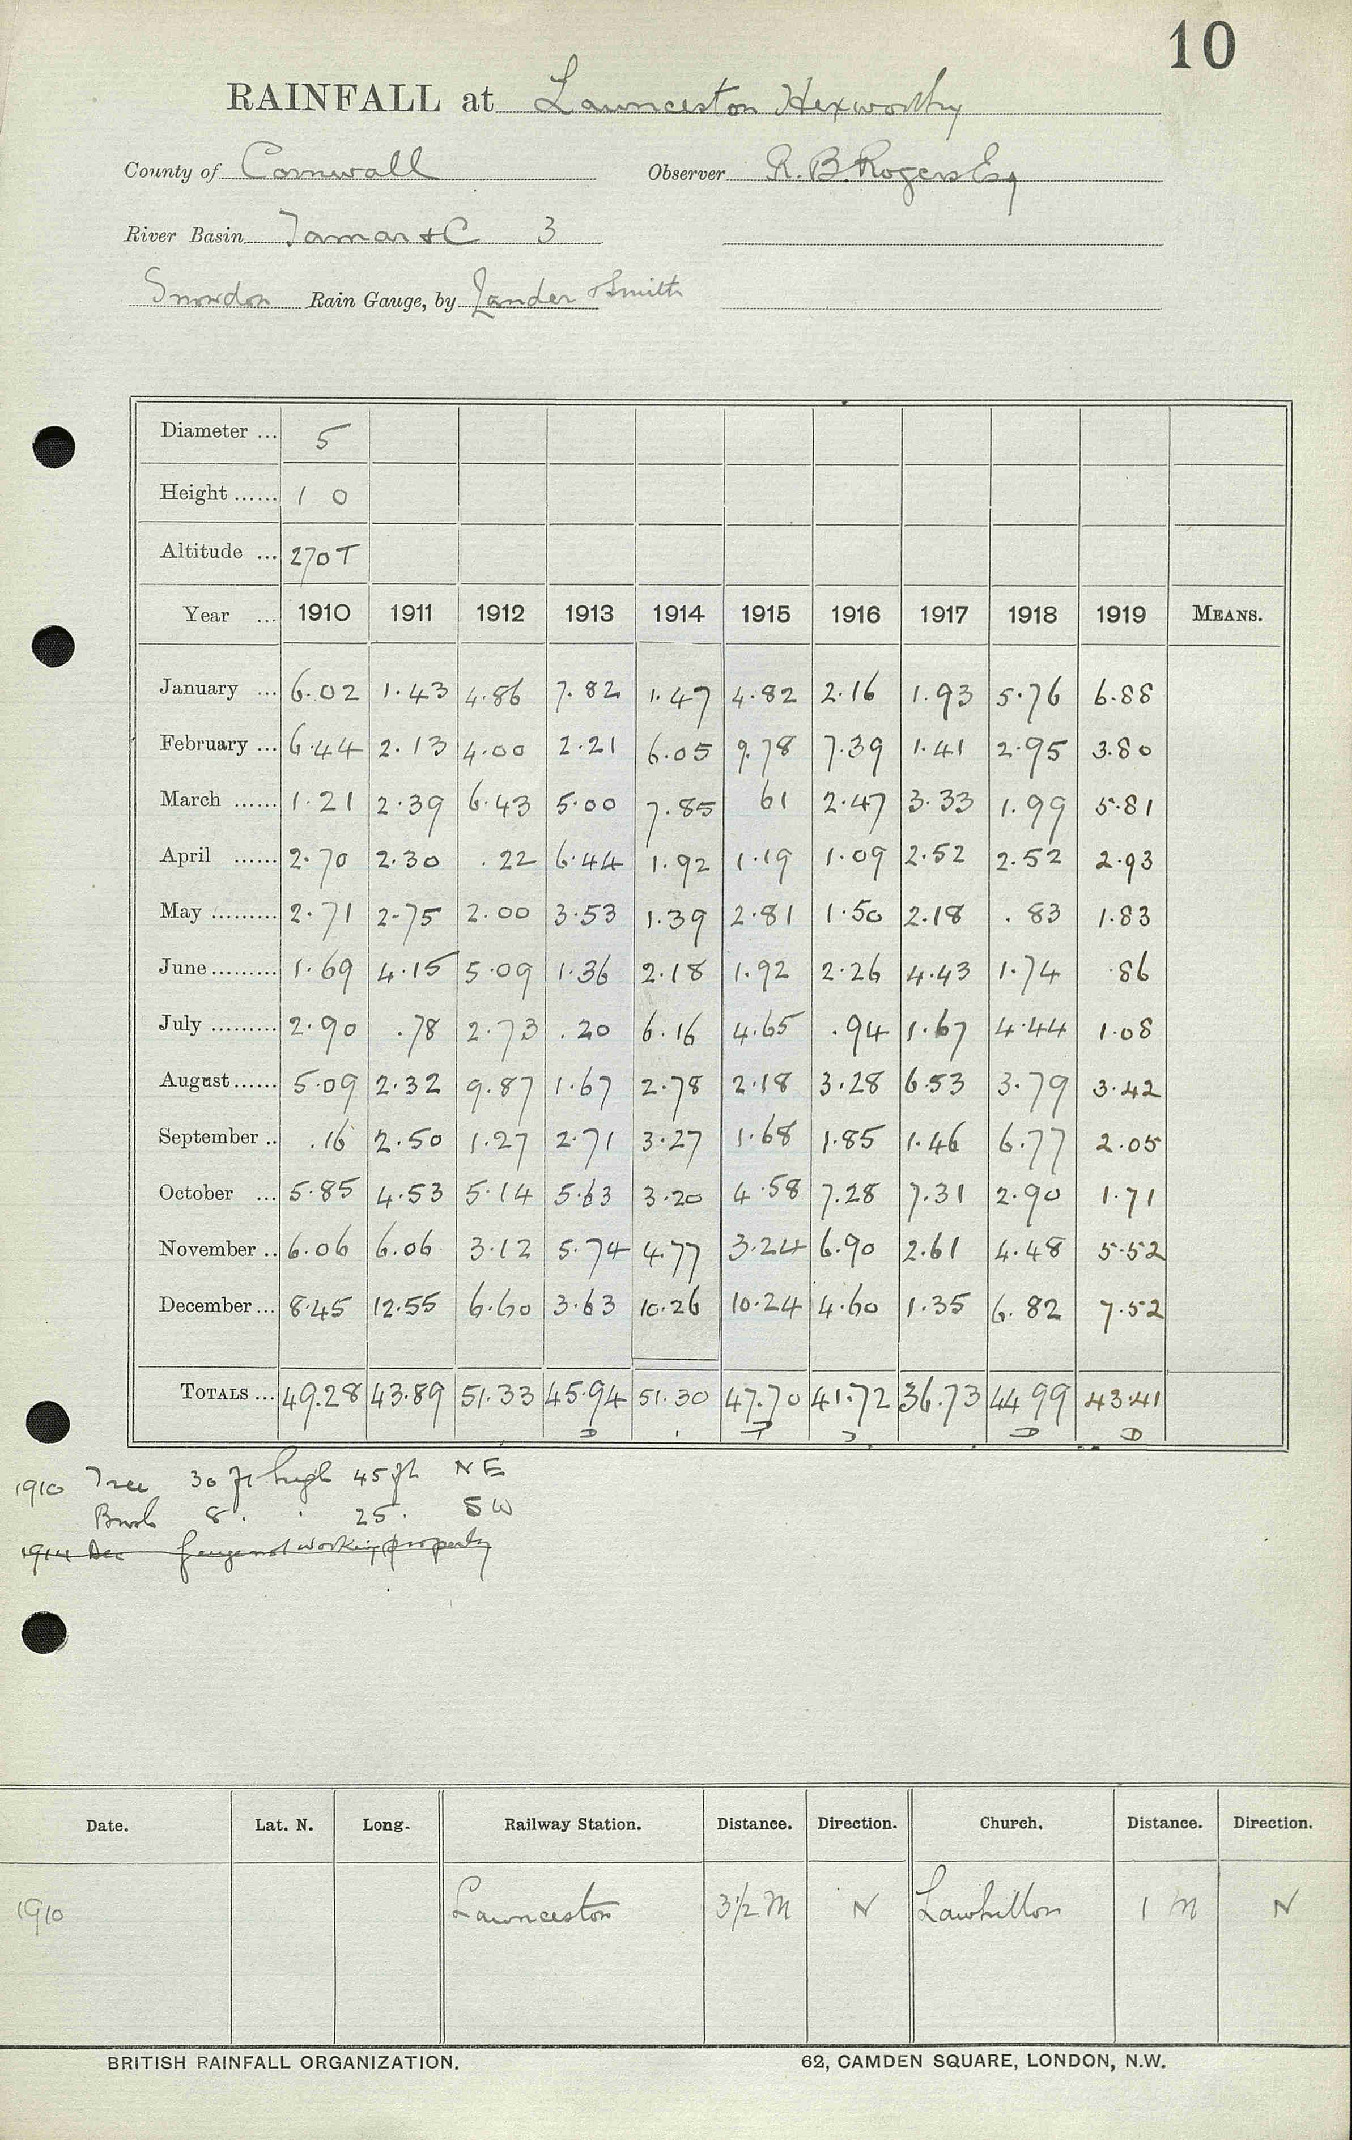 10
RAINFALL at Launceston Hexworthy
County of Cornwall Observer R. B. Rogers Esq
River Basin Tamar &C 3
Snowdon Rain Gauge, by Lander & Smith
Diameter ... 5
Height ...... 1 0
Altitude ... 270 T
Year ... 1910 1911 1912 1913 1914 1915 1916 1917 1918 1919 MEANS.
January ... 6.02 1.43 4.86 7.82 1.47 4.82 2.16 1.93 5.76 6.88
February ... 6.44 2.13 4.00 2.21 6.05 9.78 7.39 1.41 2.95 3.80
March ...... 1.21 2.39 6.43 5.00 7.85 61 2.47 3.33 1.99 5.81
April ...... 2.70 2.30 .22 6.44 1.92 1.19 1.09 2.52 2.52 2.93
May ......... 2.71 2.75 2.00 3.53 1.39 2.81 1.50 2.18 .83 1.83
June ......... 1.69 4.15 5.09 1.36 2.18 1.92 2.26 4.43 1.74 .86
July ......... 2.90 .78 2.73 .20 6.16 4.65 .94 1.67 4.44 1.08
August ...... 5.09 2.32 9.87 1.67 2.78 2.18 3.28 6.53 3.79 3.42
September .. .16 2.50 1.27 2.71 3.27 1.68 1.85 1.46 6.77 2.05
October ... 5.85 4.53 5.14 5.63 3.20 4.58 7.28 7.31 2.90 1.71
November .. 6.06 6.06 3.12 5.74 4.77 3.24 6.90 2.61 4.48 5.52
December ... 8.45 12.55 6.60 3.63 10.26 10.24 4.60 1.35 6.82 7.52
TOTALS ... 49.28 43.89 51.33 45.94 51.30 47.70 41.72 36.73 44.99 43.41
D D D
1910 Tree 30 ft high 45 ft NE
8 . . 25 . SW
1914 Dec gauge not working properly
Date. Lat. N. Long. Railway Station. Distance. Direction. Church. Distance. Direction.
1910 Launceston 3 1/2 M N Lawhitton 1 M N
BRITISH RAINFALL ORGANIZATION. 62, CAMDEN SQUARE, LONDON, N.W.